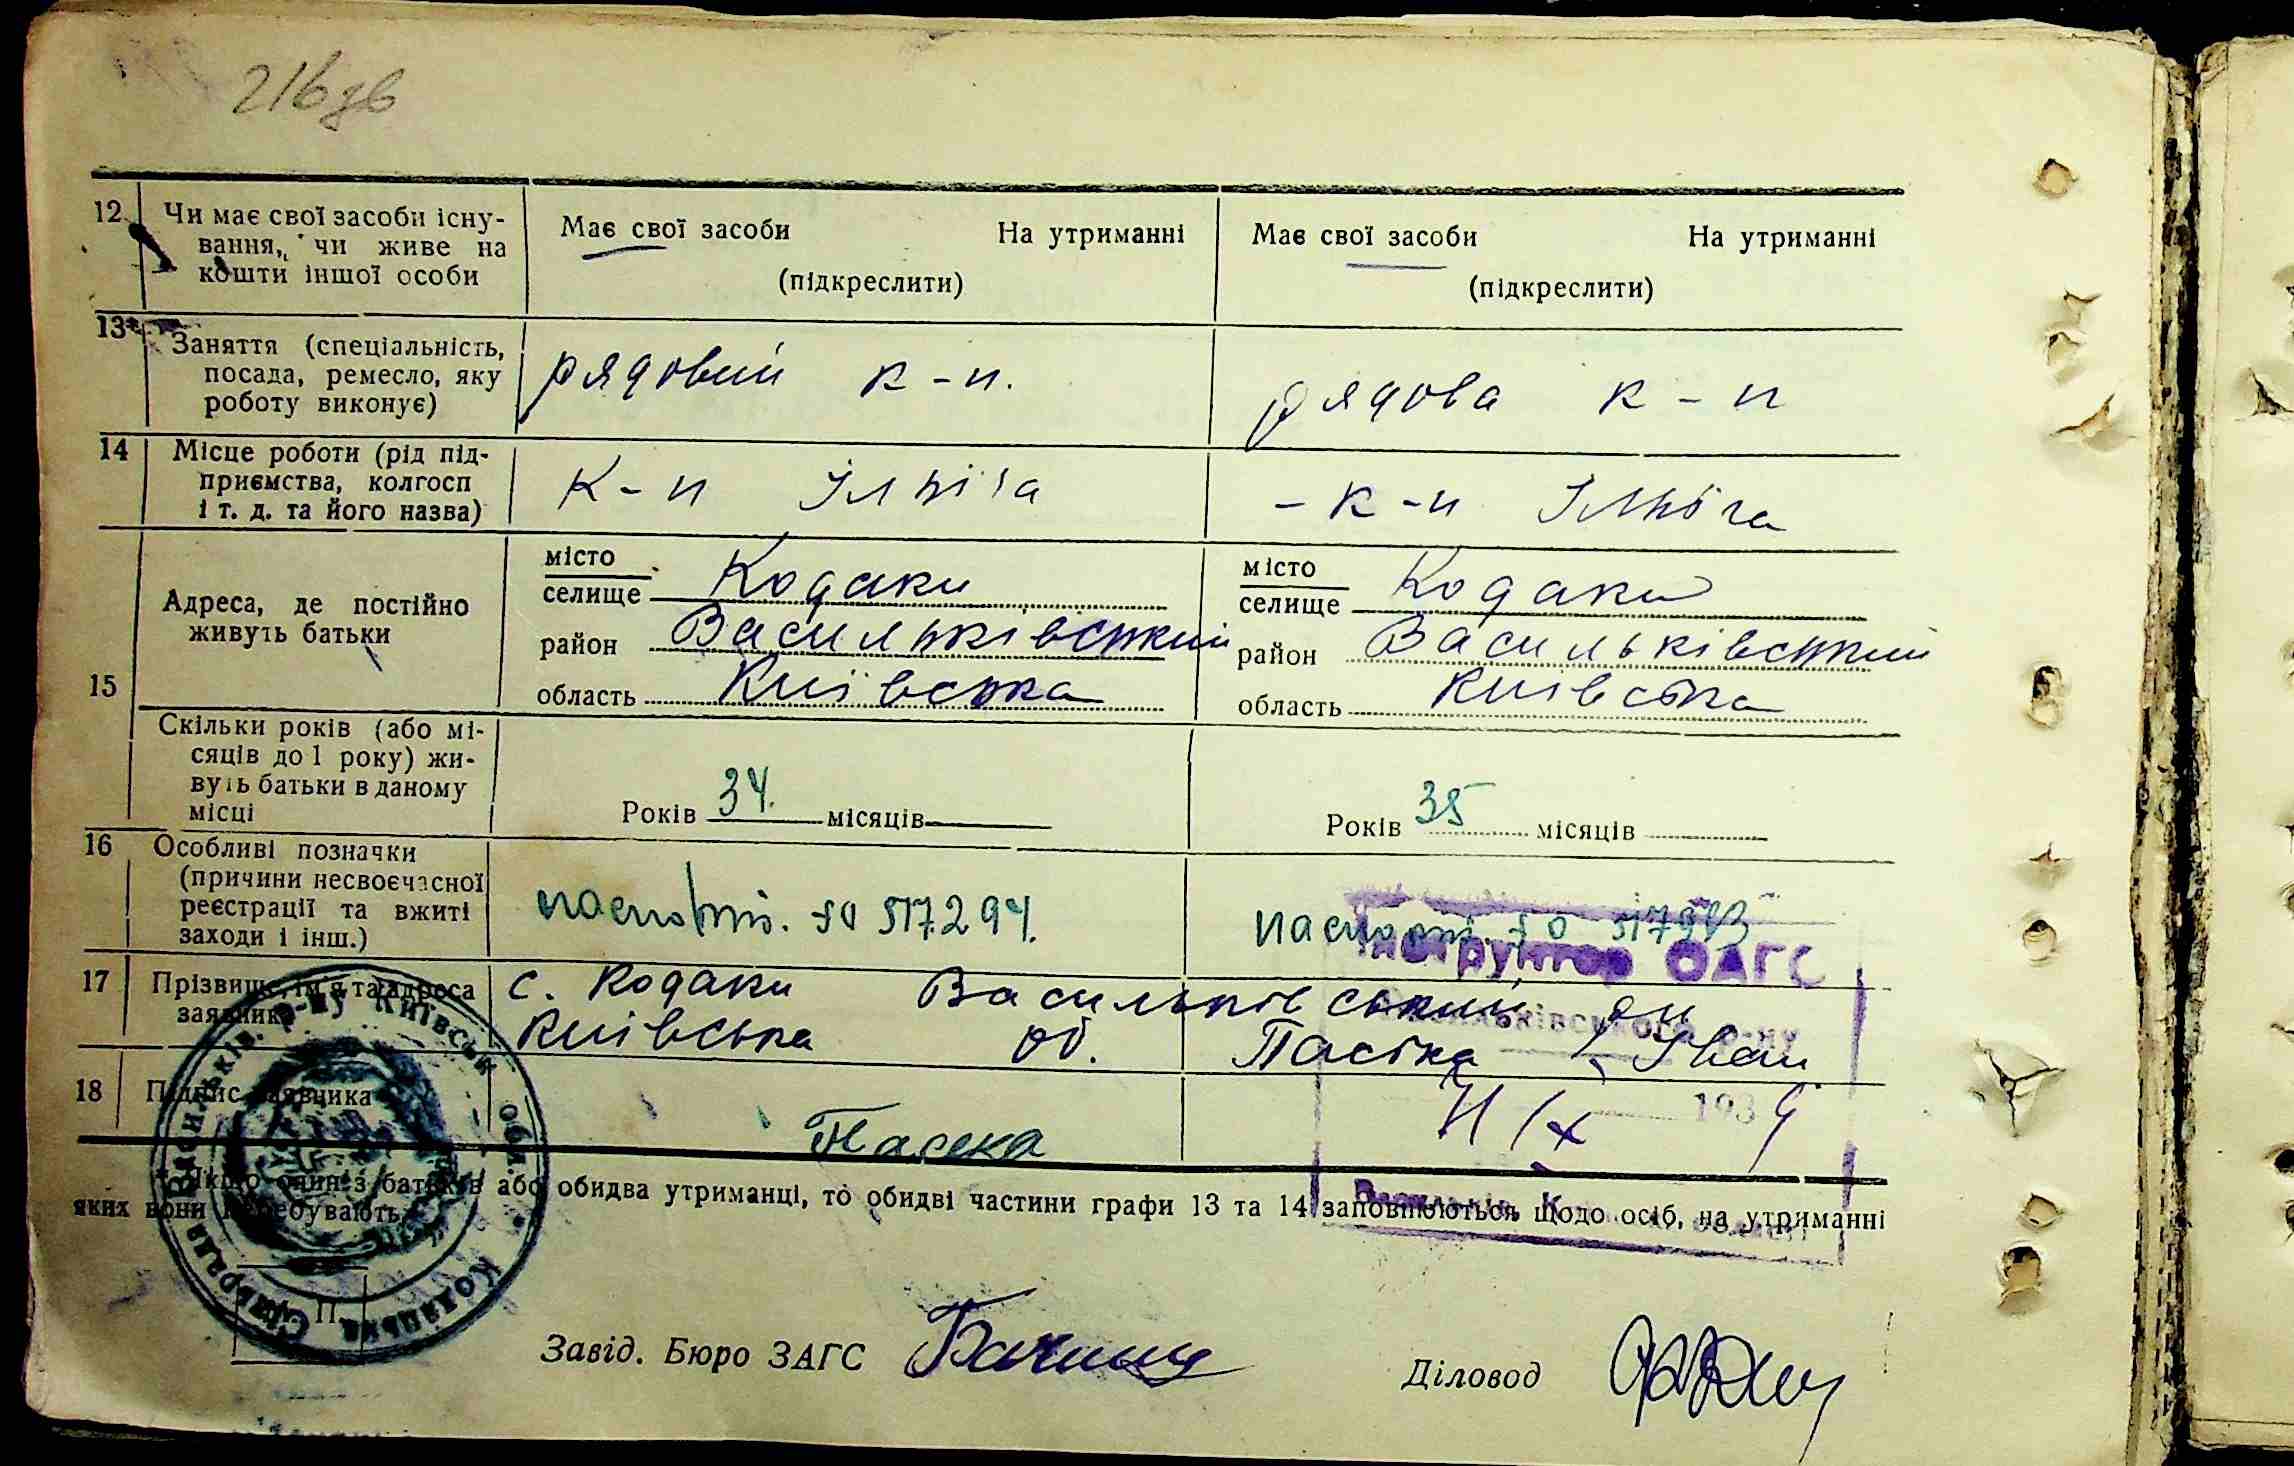 216зв
12 Чи має свої засоби існу-
вання, чи живе на
кошти іншої особи
Має свої засоби На утриманні
(підкреслити)
Має свої засоби На утриманні
(підкреслити)
13* Заняття (спеціальність,
посада, ремесло, яку
роботу виконує)
рядовий к-п.
рядова к-п
14 Місце роботи (рід під-
приємства, колгосп
і т. д. та його назва)
к-п Ілліча
- к-п Ілліча
15 Адреса, де постійно
живуть батьки
місто
селище Кодаки
район Васильківський
область Київська
місто
селище Кодаки
район Васильківський
область Київська
Скільки років (або мі-
сяців до 1 року) жи-
вуть батьки в даному
місці
Років 34. місяців
Років 35 місяців
16 Особливі позначки
(причини несвоєчасної
реєстрації та вжиті
заходи і інш.)
517294.
Інструктор ОАГС
17 Прізвище, ім'я та адреса
заявника
с. Кодаки Васильківський рн
Київська об. Пасіка Іван
Васильківського р-ну
18 Підпис заявника
Пасека
1939
* Якщо один з батьків або обидва утриманці, то обидві частини графи 13 та 14 заповнюються щодо осіб, на утриманні
яких вони перебувають.
Васильків. р-ну Київськ. обл. * Кодацька Сільрада
П.
Завід. Бюро ЗАГС
Діловод